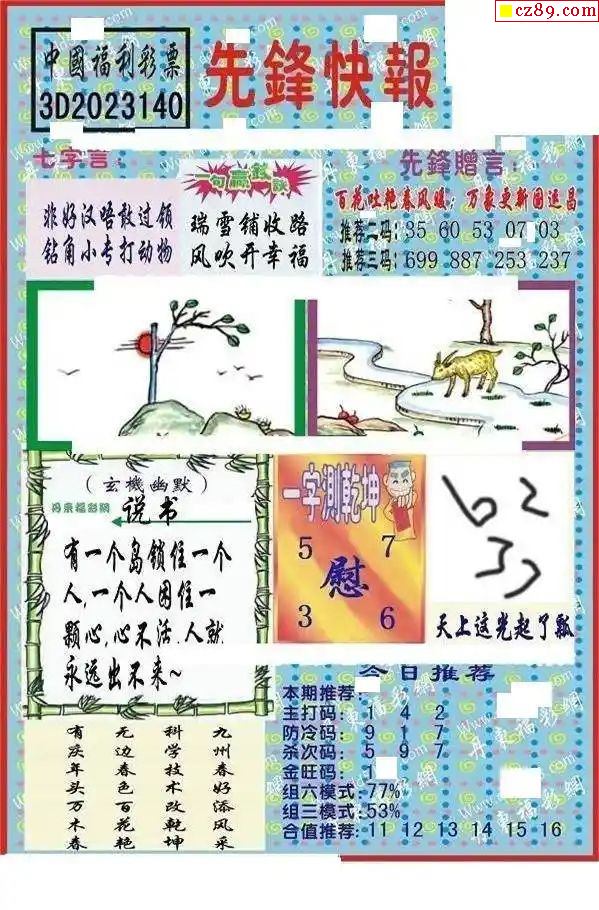 cz89.com
中國福利彩票
3D2023140
先鋒快報
七字言:
非好汉唔敢过领
钻角小专打动物
一句赢钱诀
瑞雪铺收路
风吹开幸福
先鋒贈言:
百花吐艳春风暖；万象更新国运昌
推荐二码: 35 60 53 07 03
推荐三码: 699 887 253 237
(玄機幽默)
丹東福彩網
说书
有一个岛锁住一个
人,一个人困住一
颗心,心不活.人就
永远出不来~
一字測乾坤
5 7
慰
3 6
天上这光起了瓢
今日推荐
本期推荐:
主打码: 1 4 2
防冷码: 9 1 7
杀次码: 5 9 7
金旺码: 1
组六模式:77%
组三模式:53%
合值推荐: 11 12 13 14 15 16
九州春好添风采
科学技术改乾坤
无边春色百花艳
有庆年头万木春